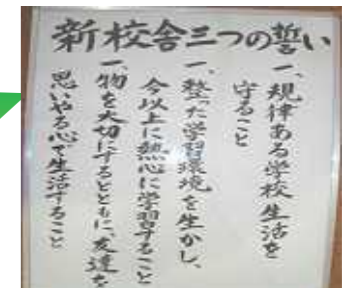 新校舎三つの誓い
一、規律ある学校生活を
守ること
一、整った学習環境を生かし、
今以上に熱心に学習すること
一、物を大切にするとともに、友達を
思いやる心で生活すること